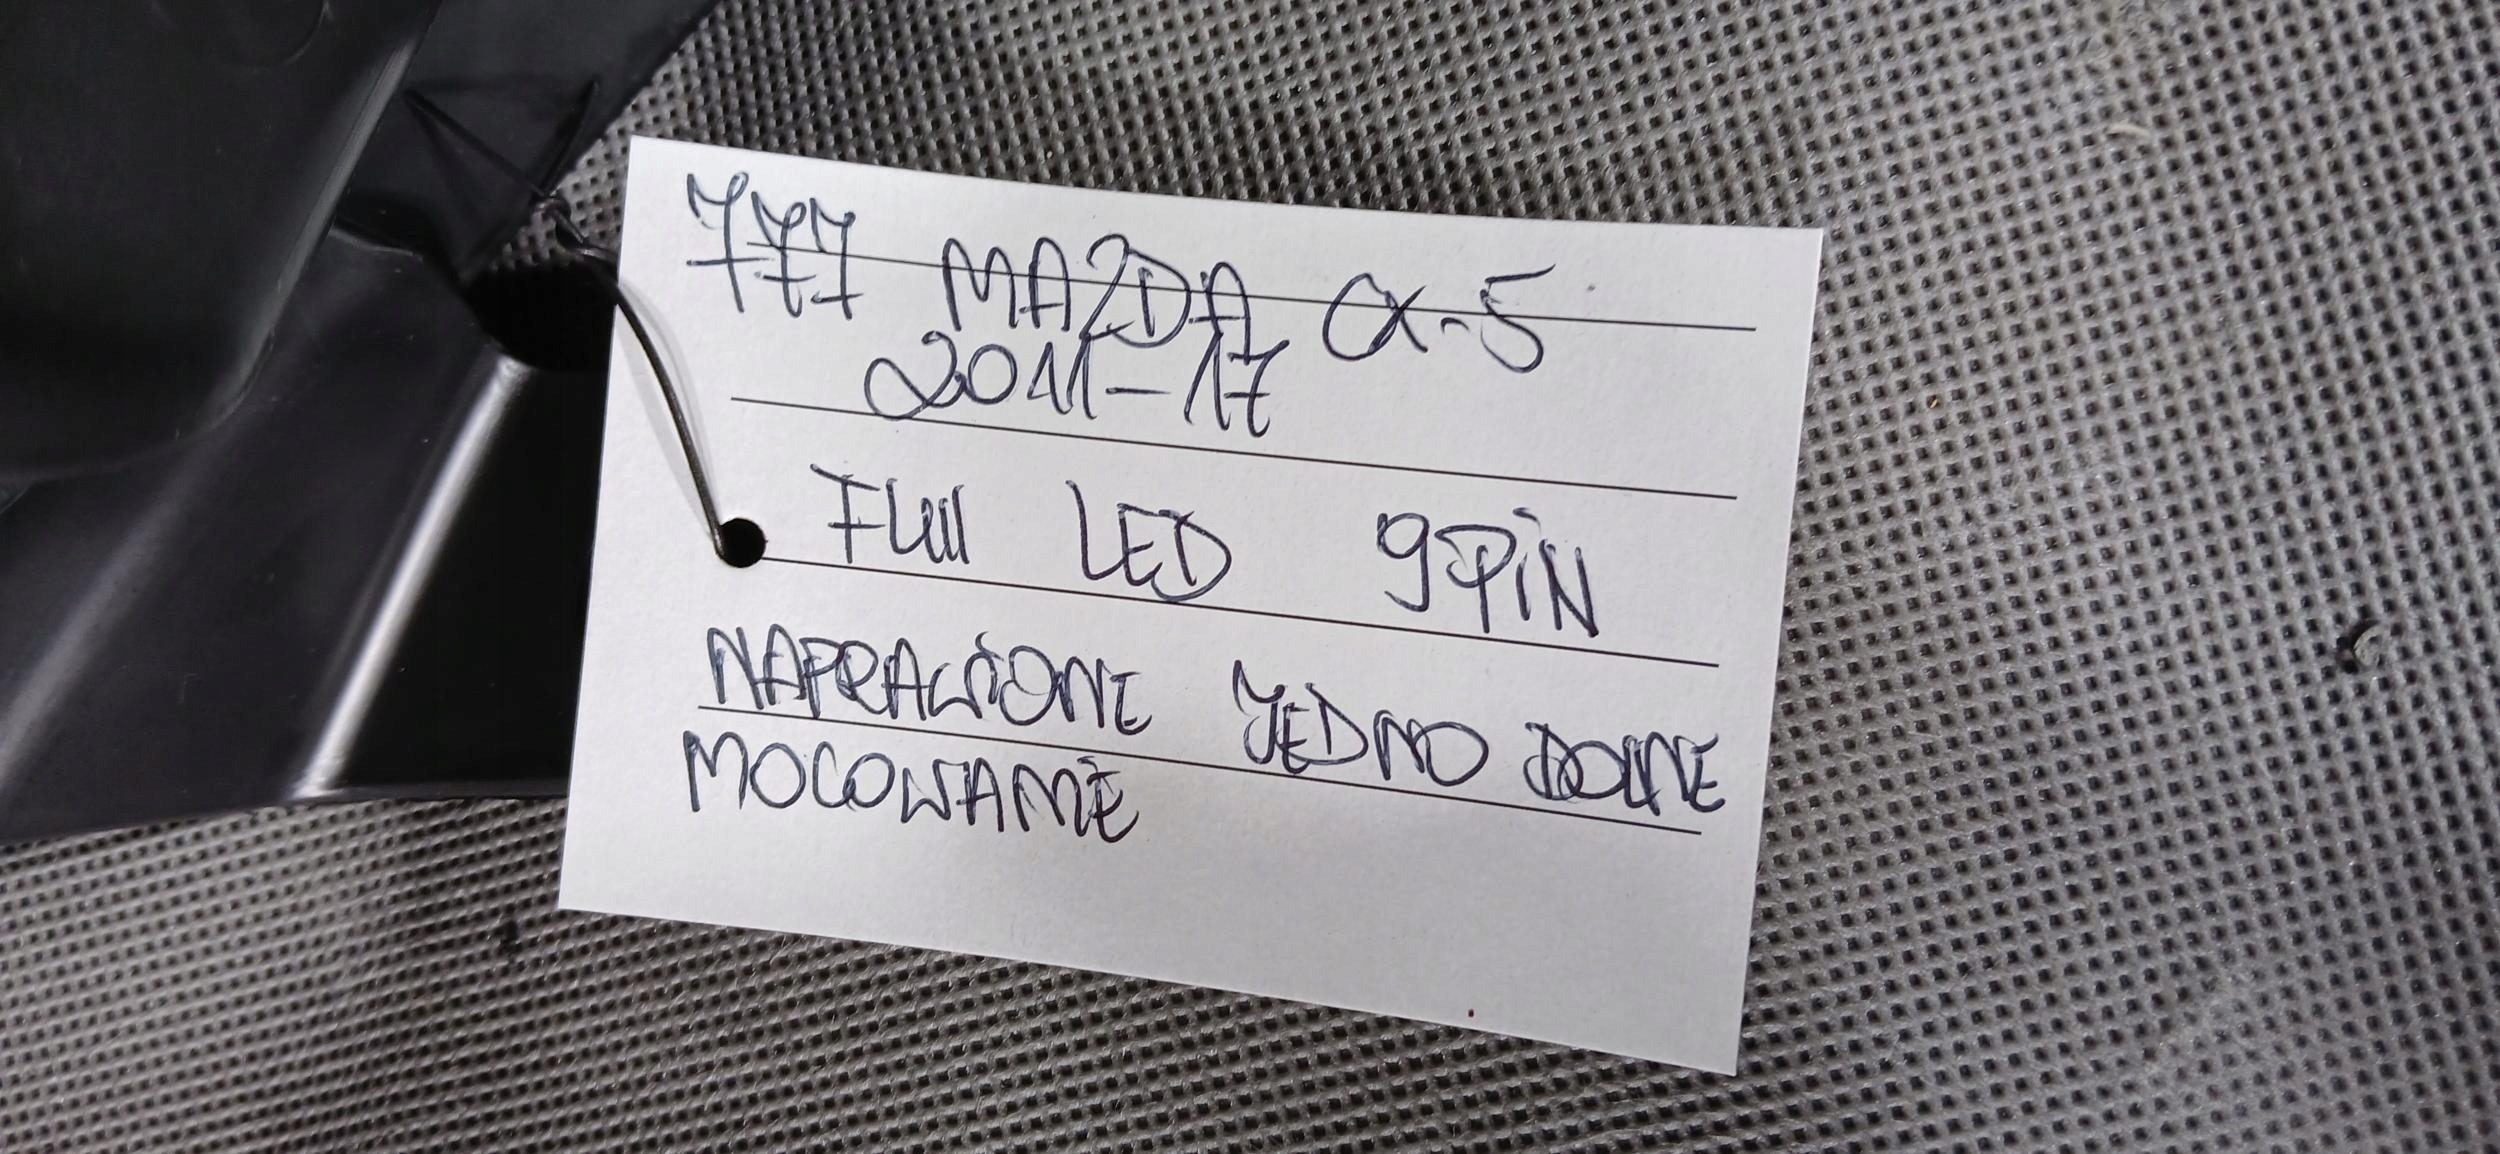 777 MAZDA CX-5
2011-17
FULL LED 9PIN
NAPRAWIONE JEDNO DOLNE
MOCOWANIE